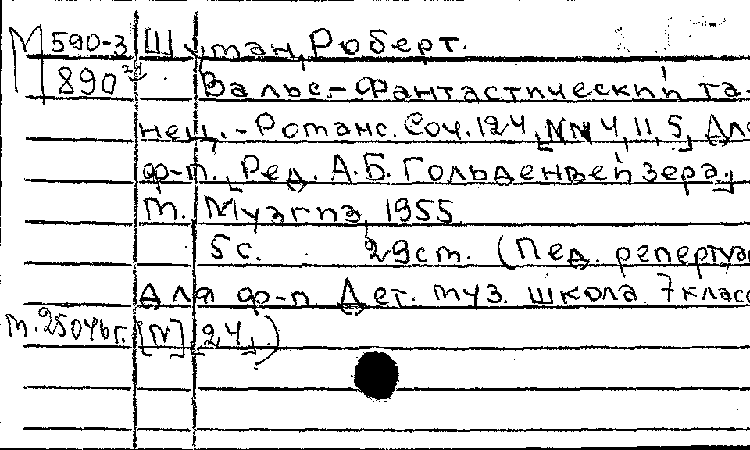 М 590-3 Шуман, Роберт.
890 Вальс.-Фантастический та-
нец.-Романс. Соч. 124, [NN 4, 11, 5,] Для
ф-п. [Ред. А.Б. Гольденвейзера.]
М. Музгиз, 1955.
5 с. 29 см. (Пед. репертуа
для ф-п. Дет. муз. школа. 7 класс
м.25046г. [N] [24,])